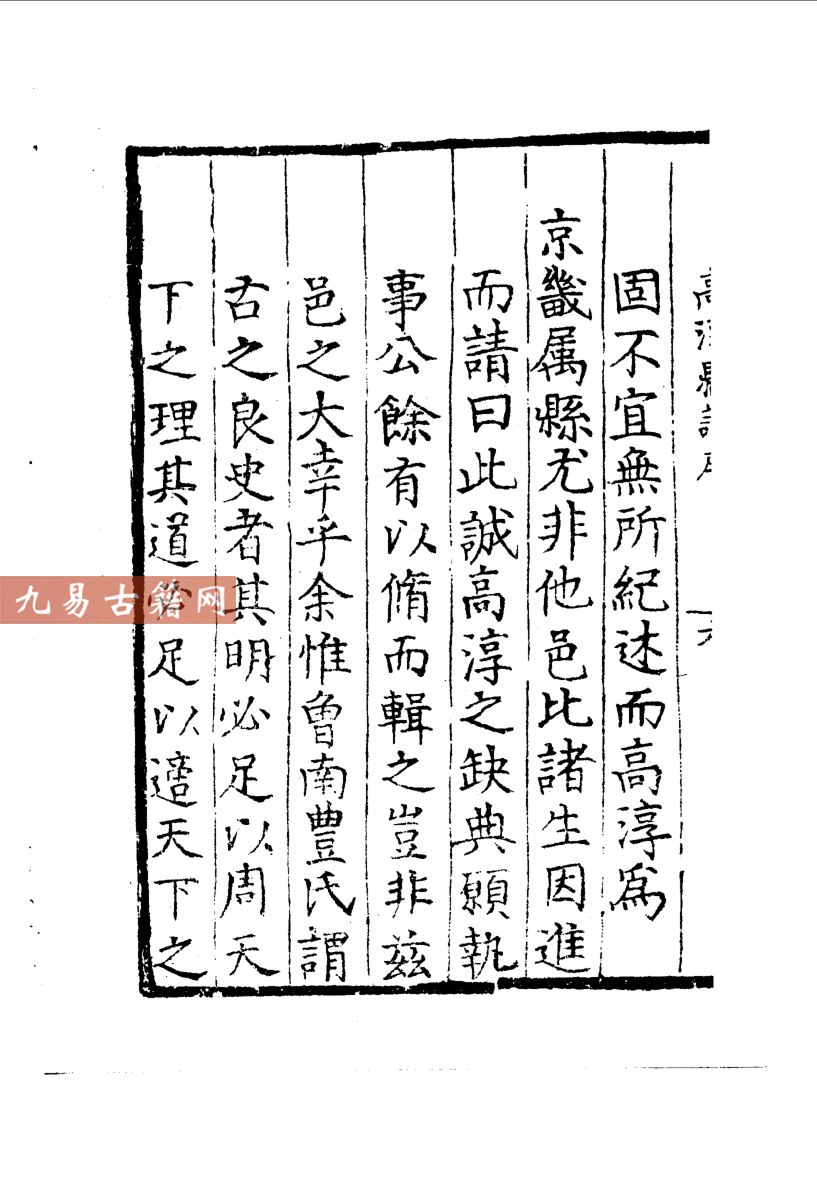 固不宜無所紀述而高淳爲
京畿属縣尤非他邑比諸生因進
而請曰此誠高淳之缺典願執
事公餘有以脩而輯之豈非兹
邑之大幸乎余惟曾南豐氏謂
古之良史者其明必足以周天
下之理其道必足以適天下之
九易古籍网